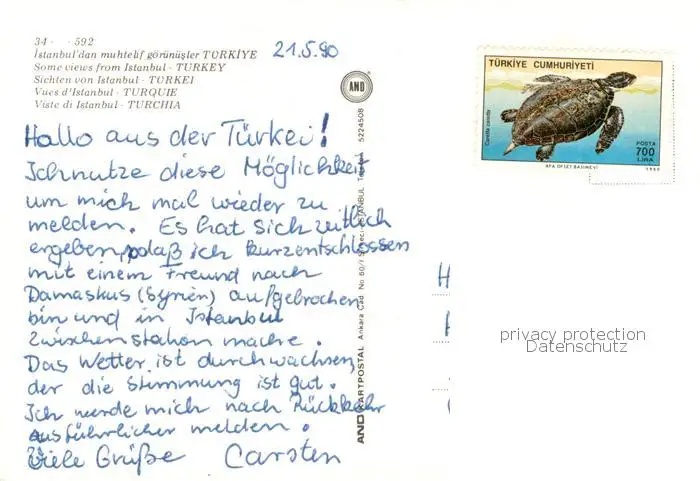 34 - - 592
İstanbul'dan muhtelif görünüşler TÜRKİYE
Some views from Istanbul - TURKEY
Sichten von Istanbul - TURKEI
Vues d'Istanbul - TURQUIE
Viste di Istanbul - TURCHIA
21.5.90
AND
Hallo aus der Türkei!
Ich nutze diese Möglichkeit
um mich mal wieder zu
melden. Es hat sich zeitlich
ergeben, daß ich kurzentschlossen
mit einem Freund nach
Damaskus (Syrien) aufgebrochen
bin und in Istanbul
Zwischenstation mache.
Das Wetter ist durchwachsen,
der die Stimmung ist gut.
Ich werde mich nach Rückkehr
ausführlicher melden.
Viele Grüße Carsten
AND KARTPOSTAL Ankara Cad. No 60/1 İSTANBUL 5224508
TÜRKİYE CUMHURİYETİ
Caretta caretta
POSTA
700
LİRA
APA OFSET BASIMEVİ
1989
H
privacy protection
Datenschutz